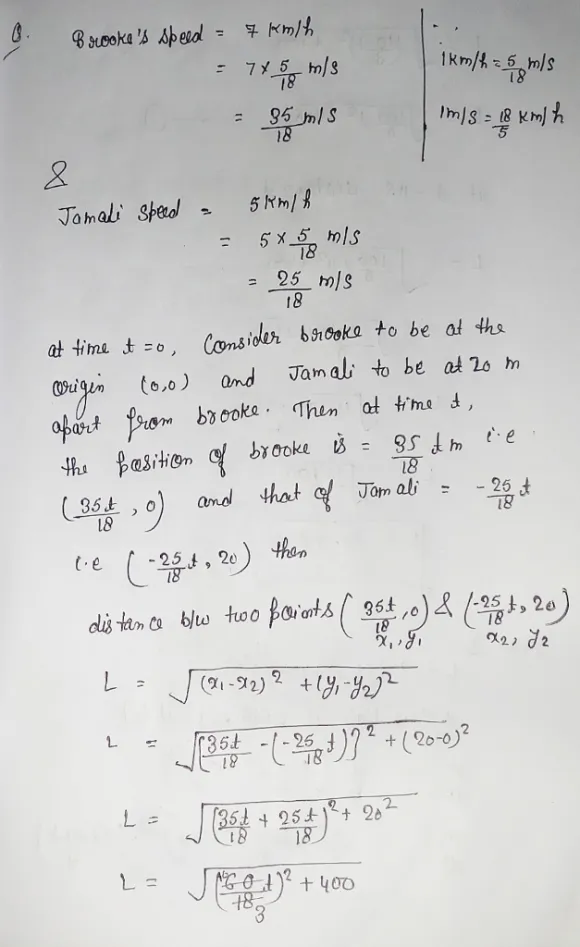 Q. Brooke's speed = 7 km/h
= 7 × 5/18 m/s
= 35/18 m/s
∴
1 km/h = 5/18 m/s
1 m/s = 18/5 km/h
&
Jamali speed = 5 km/h
= 5 × 5/18 m/s
= 25/18 m/s
at time t = 0, Consider brooke to be at the
origin (0,0) and Jamali to be at 20 m
apart from brooke. Then at time t,
the position of brooke is = 35/18 t m i.e
(35t/18, 0) and that of Jamali = -25/18 t
i.e (-25/18 t, 20) then
distance b/w two points (35t/18, 0) & (-25/18 t, 20)
x₁, y₁ x₂, y₂
L = √((x₁-x₂)² + (y₁-y₂)²)
L = √([35t/18 - (-25/18 t)}² + (20-0)²)
L = √((35t/18 + 25t/18)² + 20²)
L = √((60t/18)² + 400)
3